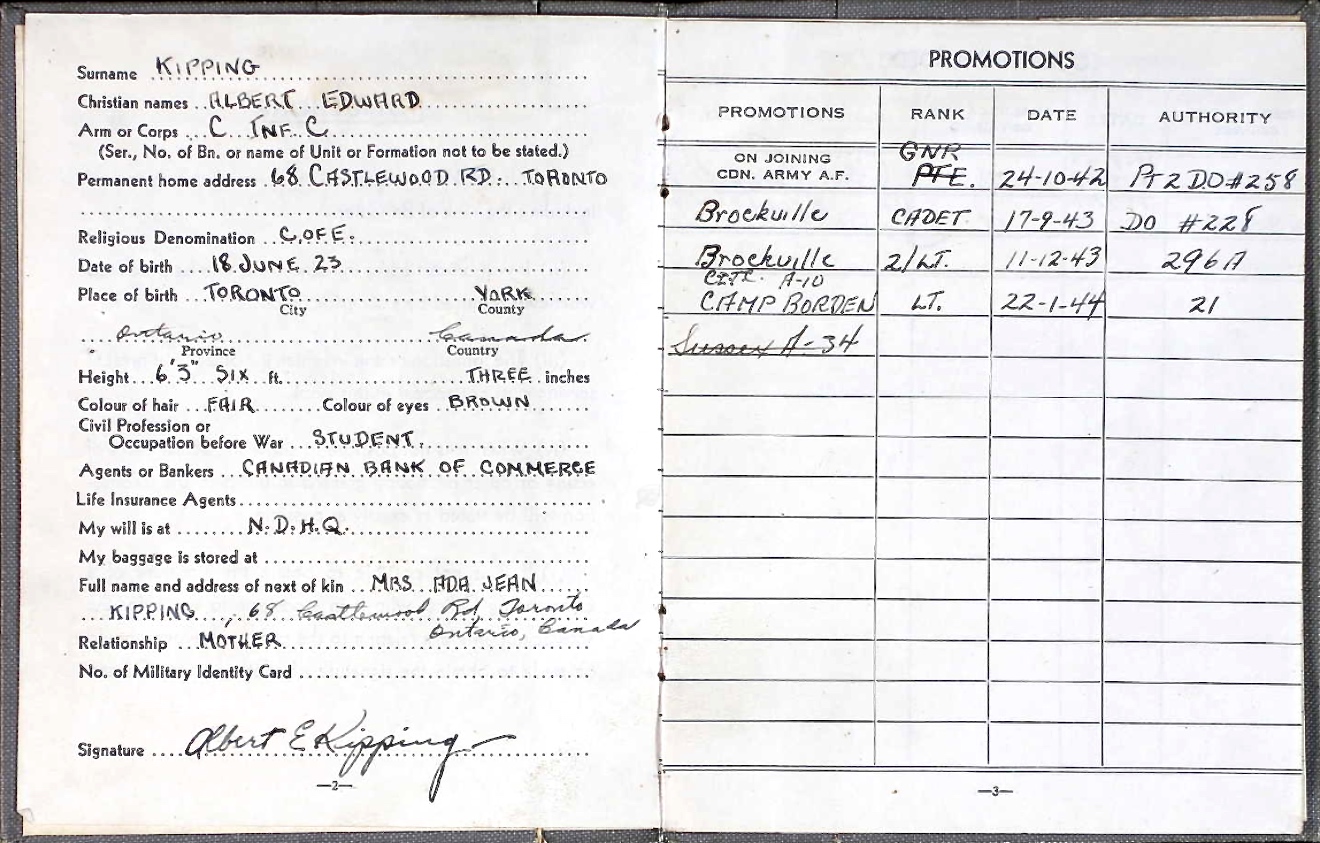 Surname KIPPING
Christian names ALBERT EDWARD
Arm or Corps C INF C
(Ser., No. of Bn. or name of Unit or Formation not to be stated.)
Permanent home address 68 CASTLEWOOD RD. TORONTO
Religious Denomination C. OF E.
Date of birth 18 JUNE 23
Place of birth TORONTO YORK
City County
Ontario Canada
Province Country
Height 6'3" SIX ft. THREE inches
Colour of hair FAIR Colour of eyes BROWN
Civil Profession or
Occupation before War STUDENT.
Agents or Bankers CANADIAN BANK OF COMMERCE
Life Insurance Agents
My will is at N.D.H.Q.
My baggage is stored at
Full name and address of next of kin MRS ADA JEAN
KIPPING, 68 Castlewood Rd, Toronto
Ontario, Canada
Relationship MOTHER
No. of Military Identity Card
Signature Albert E Kipping
—2—
PROMOTIONS
PROMOTIONS RANK DATE AUTHORITY
GNR
ON JOINING
CDN. ARMY A.F. PTE. 24-10-42 PT 2 D.O #258
Brockville CADET 17-9-43 DO #228
Brockville 2/LT. 11-12-43 296A
A-10
CAMP BORDEN LT. 22-1-44 21
Sussex A-34
—3—